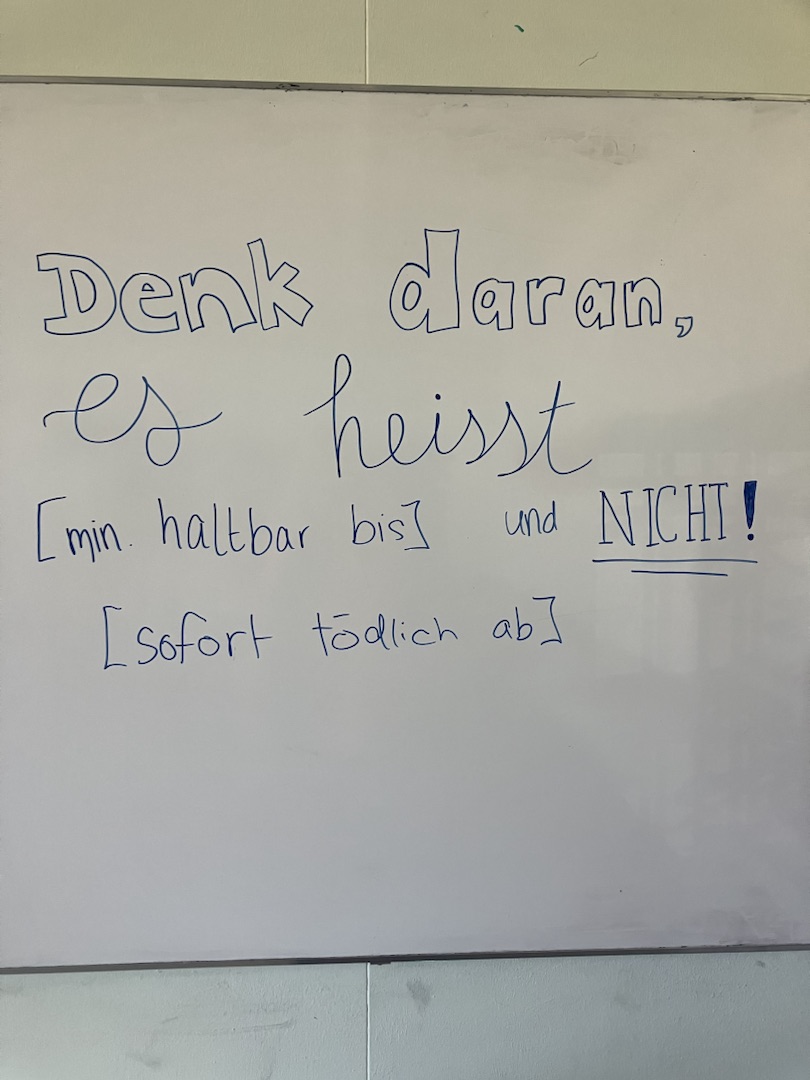 Denk daran,
es heisst
[min. haltbar bis] und NICHT!
[sofort tödlich ab]